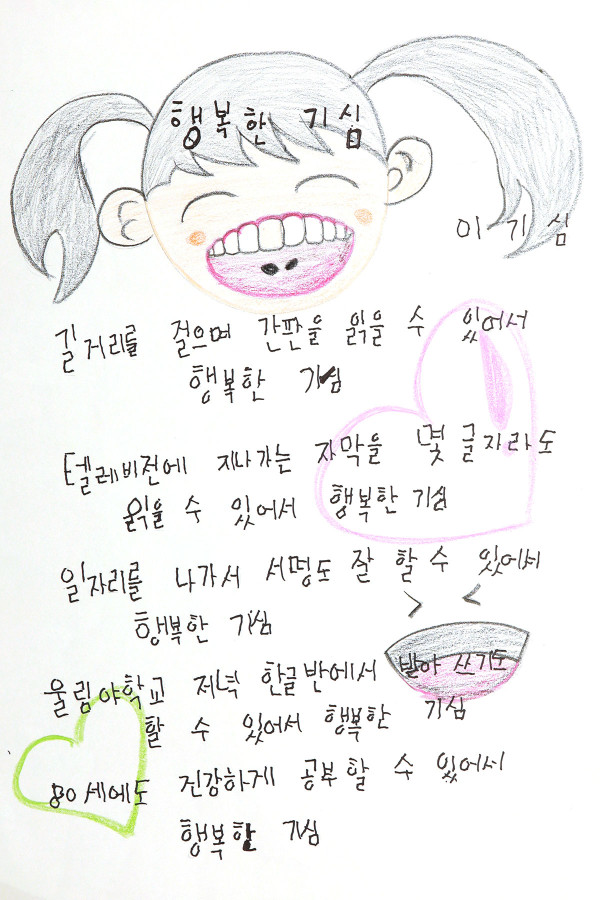 행복한 기심
이 기 심
길거리를 걸으며 간판을 읽을 수 있어서
행복한 기심
텔레비전에 지나가는 자막을 몇 글자라도
읽을 수 있어서 행복한 기심
일자리를 나가서 서명도 잘 할 수 있어서
행복한 기심
울림야학교 저녁 한글반에서 받아 쓰기도
할 수 있어서 행복한 기심
80세에도 건강하게 공부할 수 있어서
행복할 기심